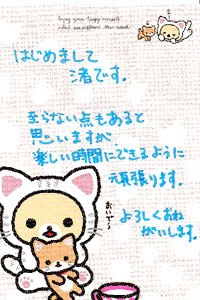 はじめまして
渚です。
至らない点もあると
思いますが、
楽しい時間にできるように
頑張ります。
よろしくおね
がいします。